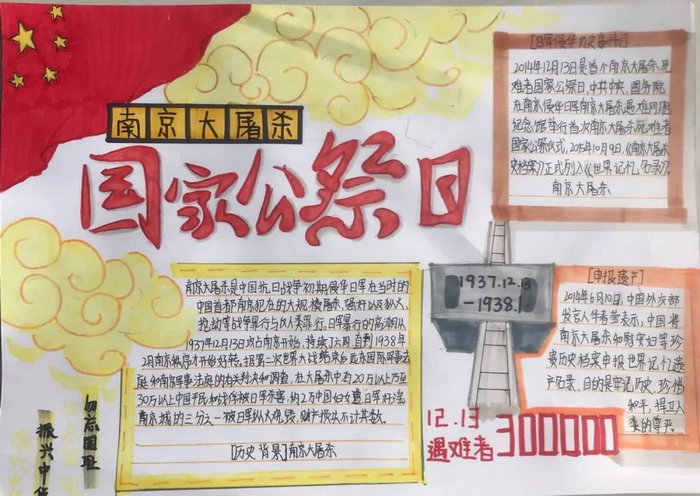 南京大屠杀
国家公祭日
[日军侵华历史事件]
2014年12月13日是首个南京大屠杀死
难者国家公祭日,中共中央、国务院
在南京侵华日军南京大屠杀遇难同胞
纪念馆举行首次南京大屠杀死难者
国家公祭仪式,2015年10月9日,《南京大屠杀
史档案》正式列入《世界记忆名录》。
南京大屠杀
1937.12.13
-1938.1
[申报遗产]
2014年6月10日,中国外交部
发言人华春莹表示,中国将
南京大屠杀和慰安妇等珍
贵历史档案申报世界记忆遗
产名录,目的是牢记历史,珍惜
和平,捍卫人
类的尊严
南京大屠杀是中国抗日战争初期侵华日军在当时的
中国首都南京犯下的大规模屠杀、强奸以及纵火、
抢劫等战争罪行与反人类罪行。日军暴行的高潮从
1937年12月13日攻占南京开始,持续了六周,直到1938年
2月南京秩序才开始好转。据第二次世界大战结束后远东国际军事法
庭和南京军事法庭的有关判决和调查,在大屠杀中有20万以上乃至
30万以上中国平民和战俘被日军杀害,约2万中国妇女遭日军奸淫,
南京城的三分之一被日军纵火烧毁,财产损失不计其数。
[历史背景]南京大屠杀
12.13
遇难者300000
勿忘国耻
振兴中华